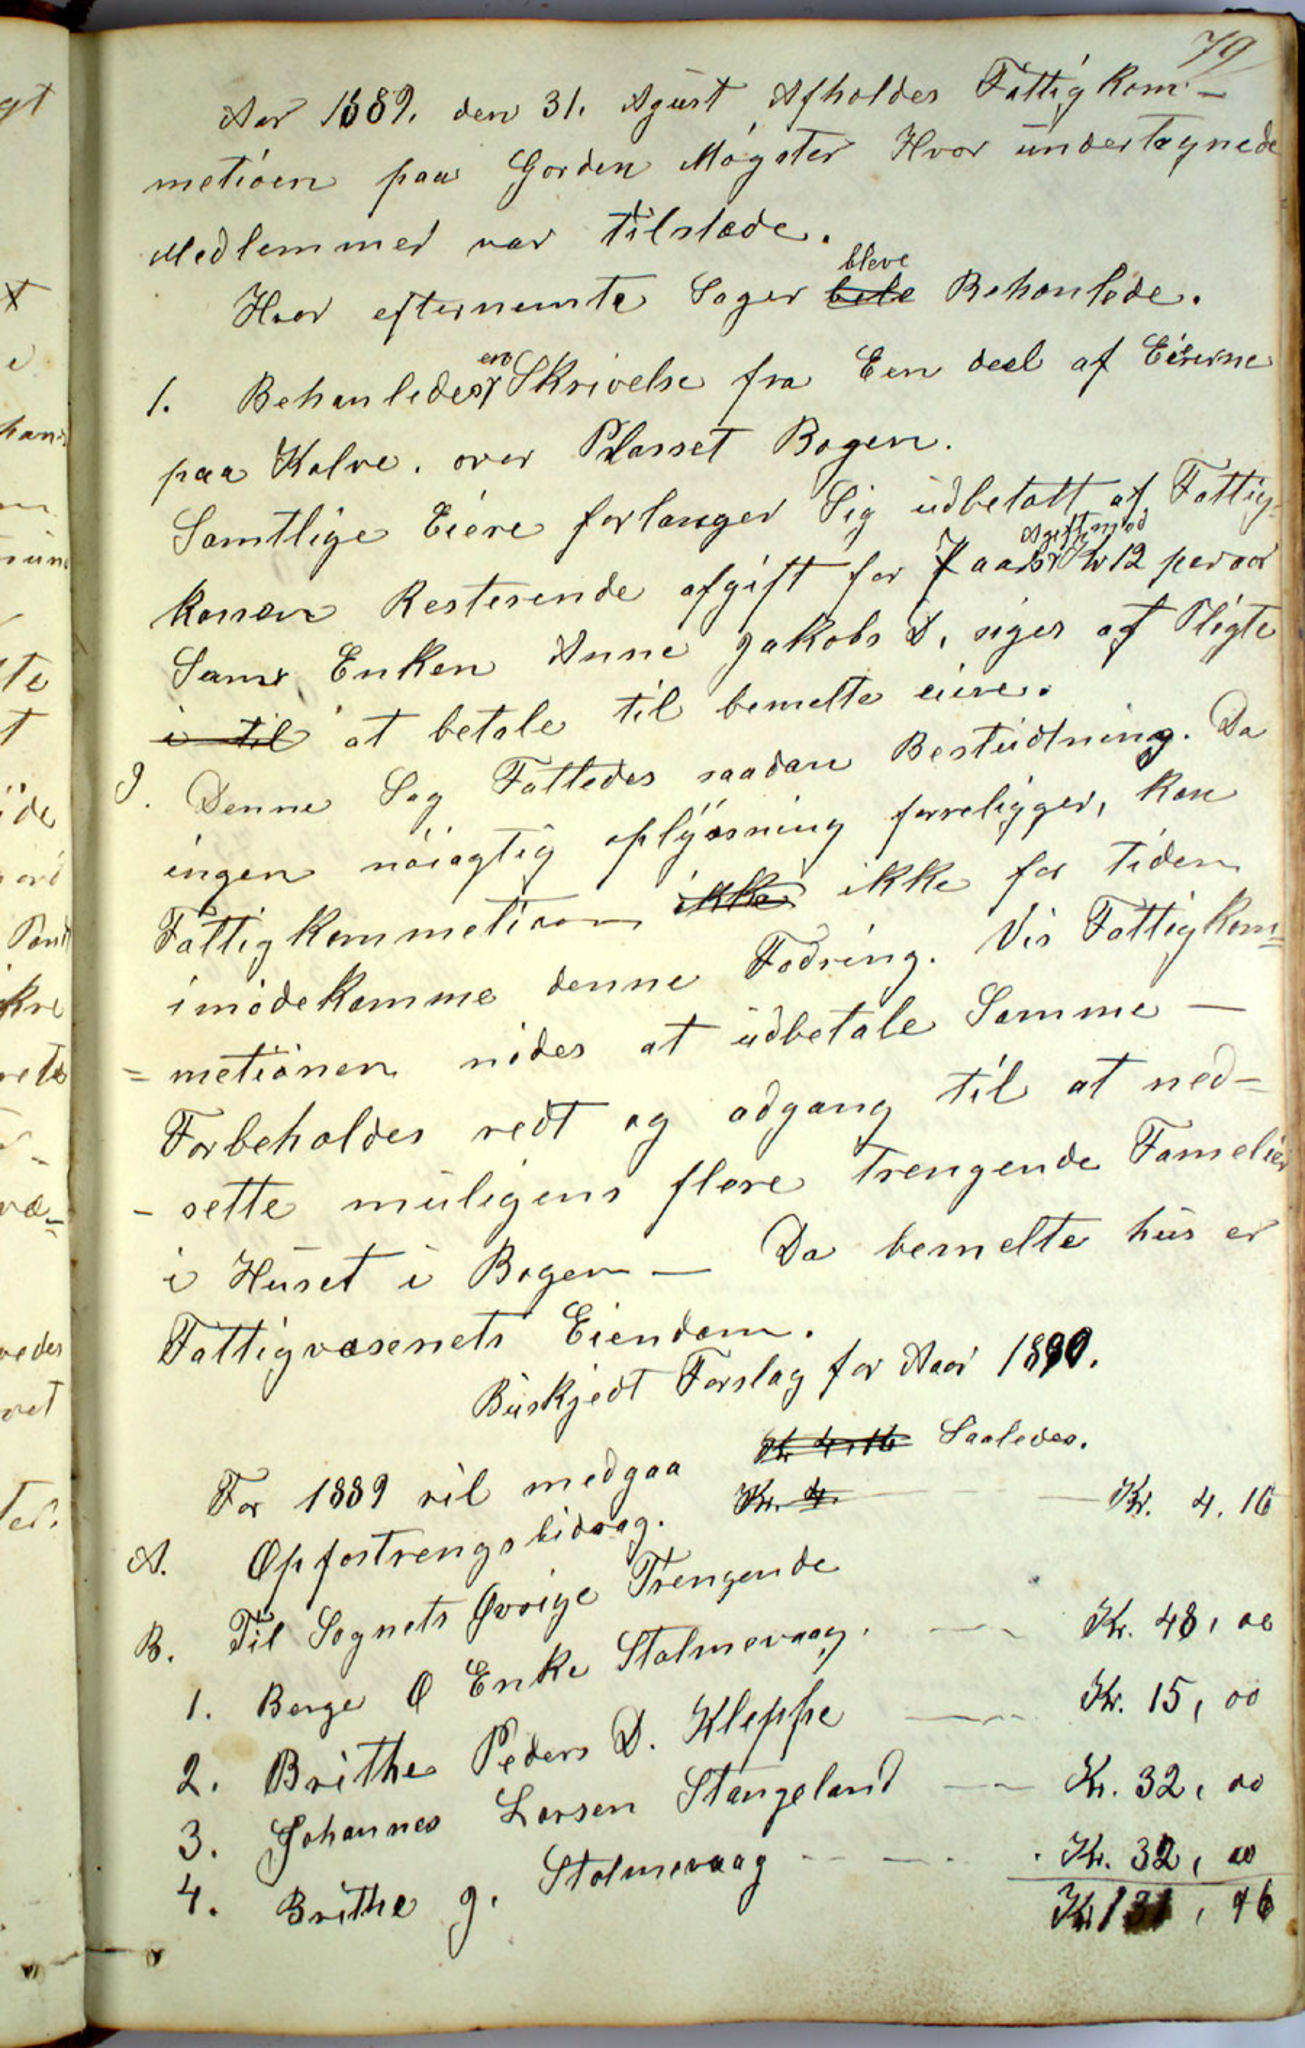 79
Aar 1889. den 31. Agust Afholdes Fattigkom-
metioen paa Gorden Møgster Hvor undertegnede
Medlemmer var tilstæde.
Hvor efternemte Sager bele bleve Behanlede.
1. Behanledes en Skrivelse fra Een deel af Eierne
paa Kalve. over Plasset Bogen.
Samtlige Eiere forlanger Sig udbetalt af Fattig-
kassen Resterende afgift for 7 aars Agift mod Kr 12 per aar
Sams Enken Anne Jakobs D. siges af Pligte
i til at betale til bemelte eiere.
I. Denne Sag Fattedes saadan Bestudtning. Da
ingen nöiagtig oplÿsning forreligger, kan
Fattigkommetioen ikke ikke for tiden
imødekomme denne Fodring. Vis Fattigkom=
= metiönen nödes at udbetale Samme —
Forbeholdes redt og adgang til at ned-
- sette muligens flere trengende Famelier
i Huset i Bogen — Da bemelte hus er
Fattigvæsenets Eiendom.
Buskjedt Forslag for Aar 1890.
For 1889 vil medgaa Kr 4,16 Saaledes.
A. Opfostrengsbidrag. Kr. 4. — Kr. 4.16
B. Til Sognets Øvrige Trengende
1. Berge O Enke Stolmevaag. — Kr. 48, 00
2. Brithe Peders D. Kleppe — Kr. 15, 00
3. Johannes Larsen Stangeland — Kr. 32, 00
4. Brithe J. Stolmevaag — Kr. 32, 00
Kr 131, 16